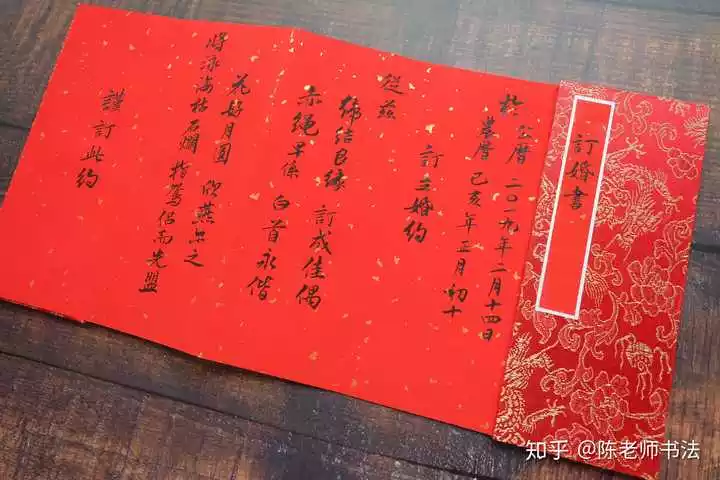 訂婚書
於公曆二〇一九年二月十四日
農曆己亥年正月初十
訂立婚約
從茲
締結良緣 訂成佳偶
赤繩早係 白首永偕
花好月圓 欣燕尔之
將泳海枯石爛 指鴛侶而先盟
謹訂此約
知乎 @陈老师书法